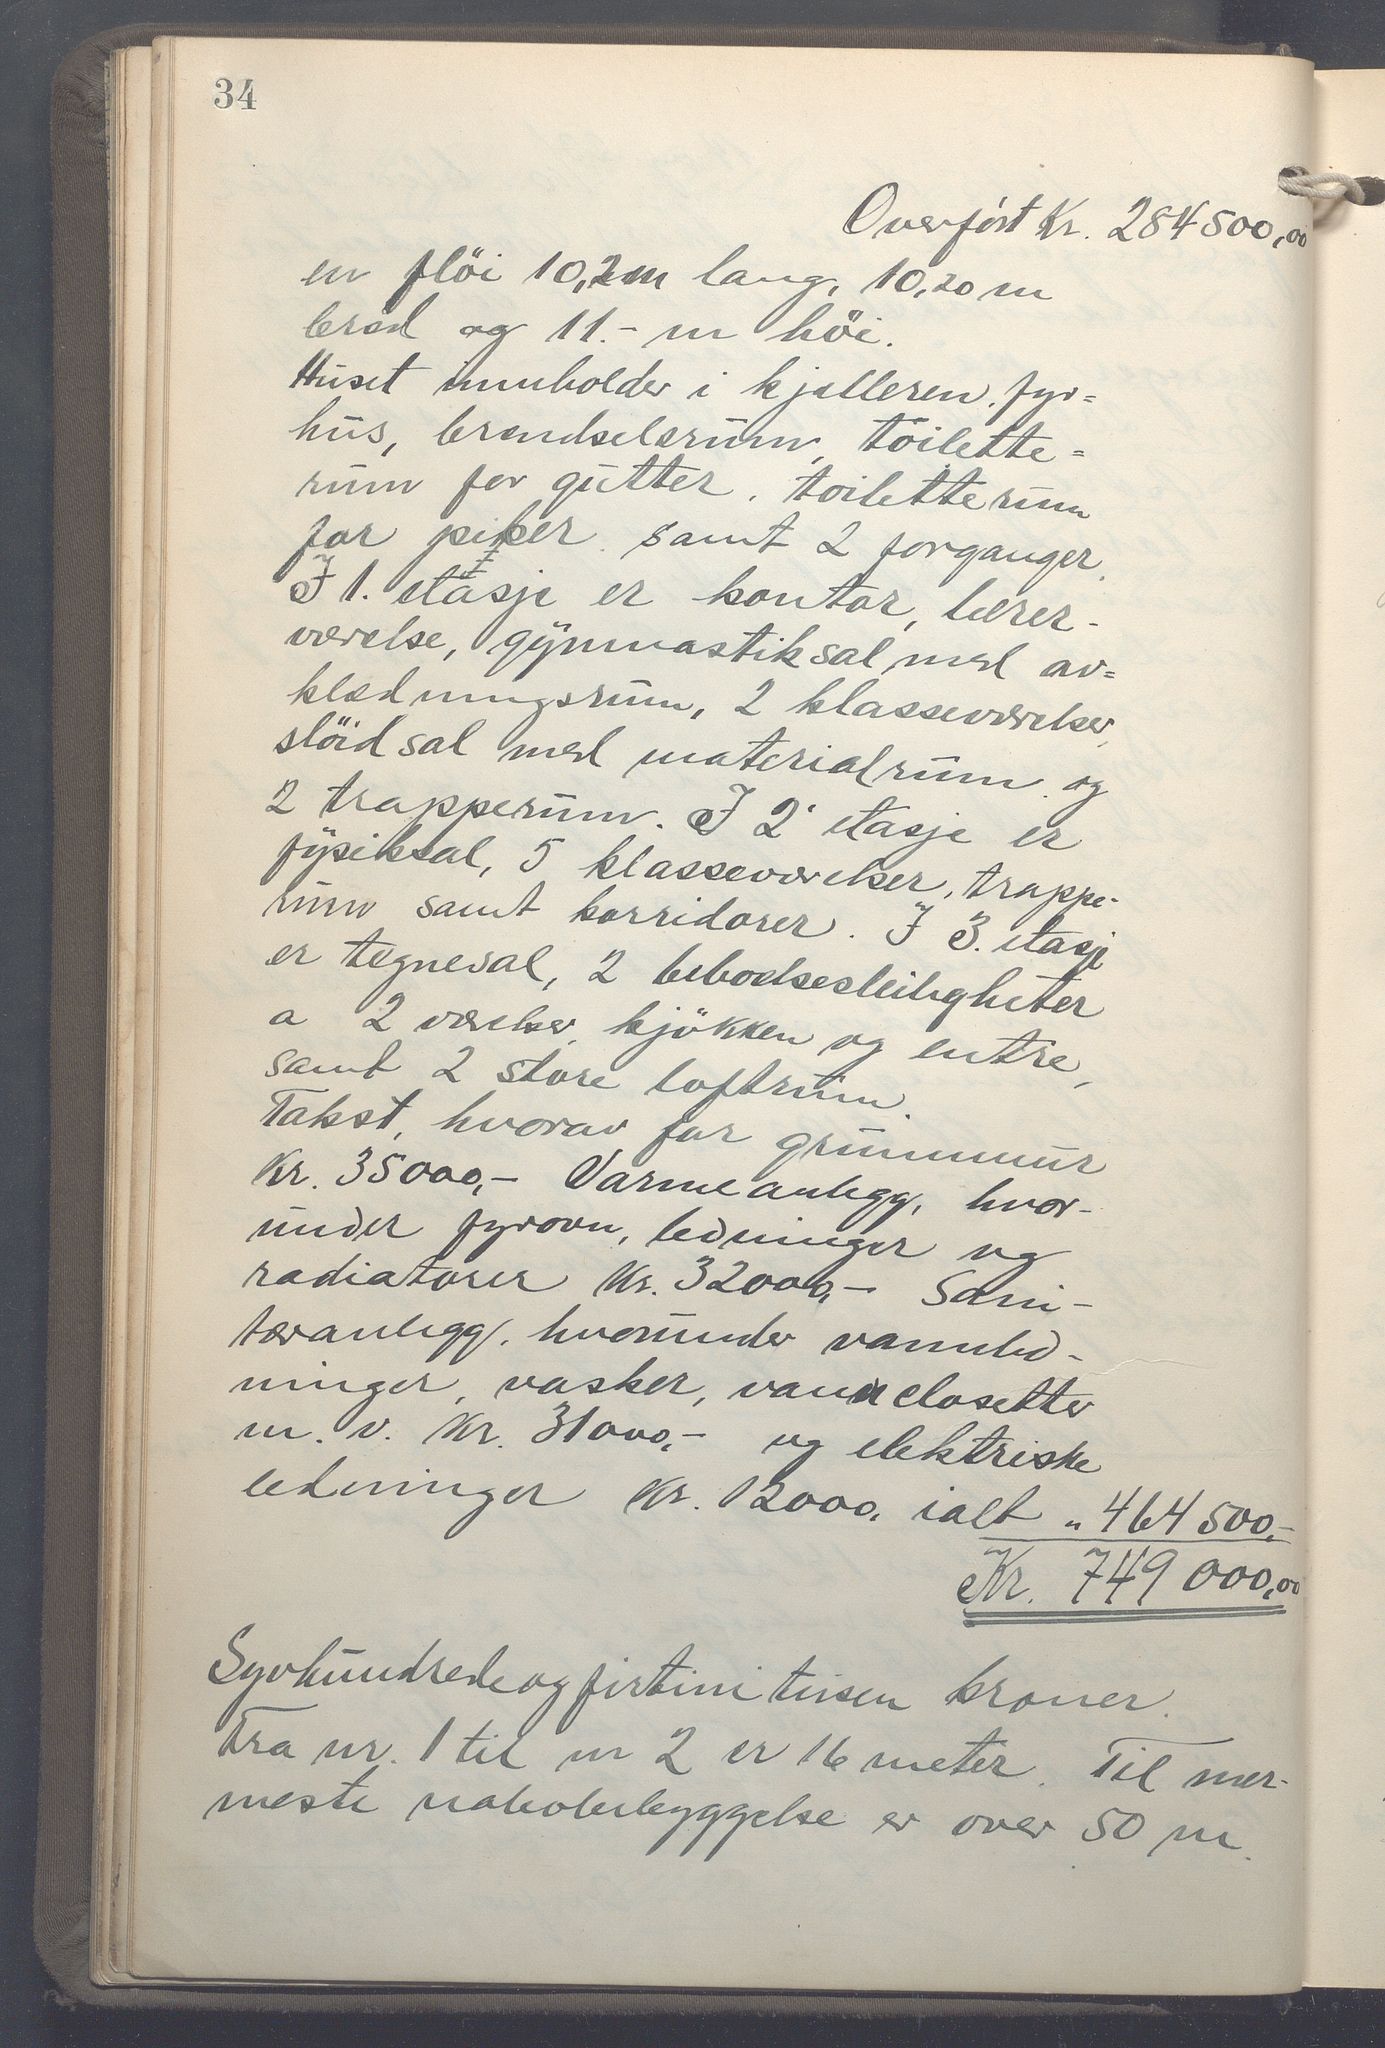 34
Overført Kr. 284500,00
en flöi 10,2m lang, 10,20 m
bred og 11.- m höi.
Huset innholder i kjelleren, fyr=
hus, brendselsrum, toilette=
rum for gutter, toiletterum
for piker samt 2 forganger.
I 1. etasje er kontor, lærer-
værelse, gymnastiksal med av=
klædningsrum, 2 klasseværelser,
slöidsal med materialrum og
2 trapperum. I 2. etasje er
fysiksal, 5 klasseværelser, trappe-
rum samt korridorer. I 3. etasje
er tegnesal, 2 beboelsesleiligheter
a 2 værelser, kjökken og entre,
samt 2 store loftrum.
Takst, hvorav for grunnmur
Kr. 35000,- Varmeanlegg, hvor-
under fyrovn, ledninger og
radiatorer Kr. 32000,- Sani-
tæranlegg, hvorunder vannled-
ninger, vasker, vannclosetter
m. v. Kr. 31000,- og elektriske
ledninger Kr. 12000, ialt " 464500,-
Kr. 749000,00
Syvhundredeogfirtini tusen kroner.
Fra nr. 1 til nr 2 er 16 meter. Til nær-
meste nabobebyggelse er over 50 m.